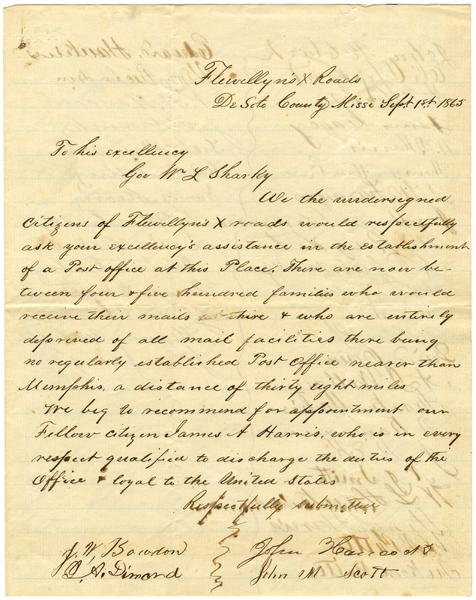 Flewellyn's X Roads
De Soto County Missi Sept 1st 1865
To his excellency
Gov Wm L Sharky
We the undersigned
Citizens of Flewellyn's X roads would respectfully
ask your excellency's assistance in the establishment
of a Post office at this Place. There are now be-
tween four & five hundred families who would
receive their mails here & who are entirely
deprived of all mail facilities there being
no regularly established Post Office nearer than
Memphis, a distance of thirty eight miles
We beg to recommend for appointment our
Fellow Citizen James A Harris, who is in every
respect qualified to discharge the duties of the
Office & loyal to the United States
Respectfully submitted
J. W. Bowdon John Hancock
A. Dimond John M Scott